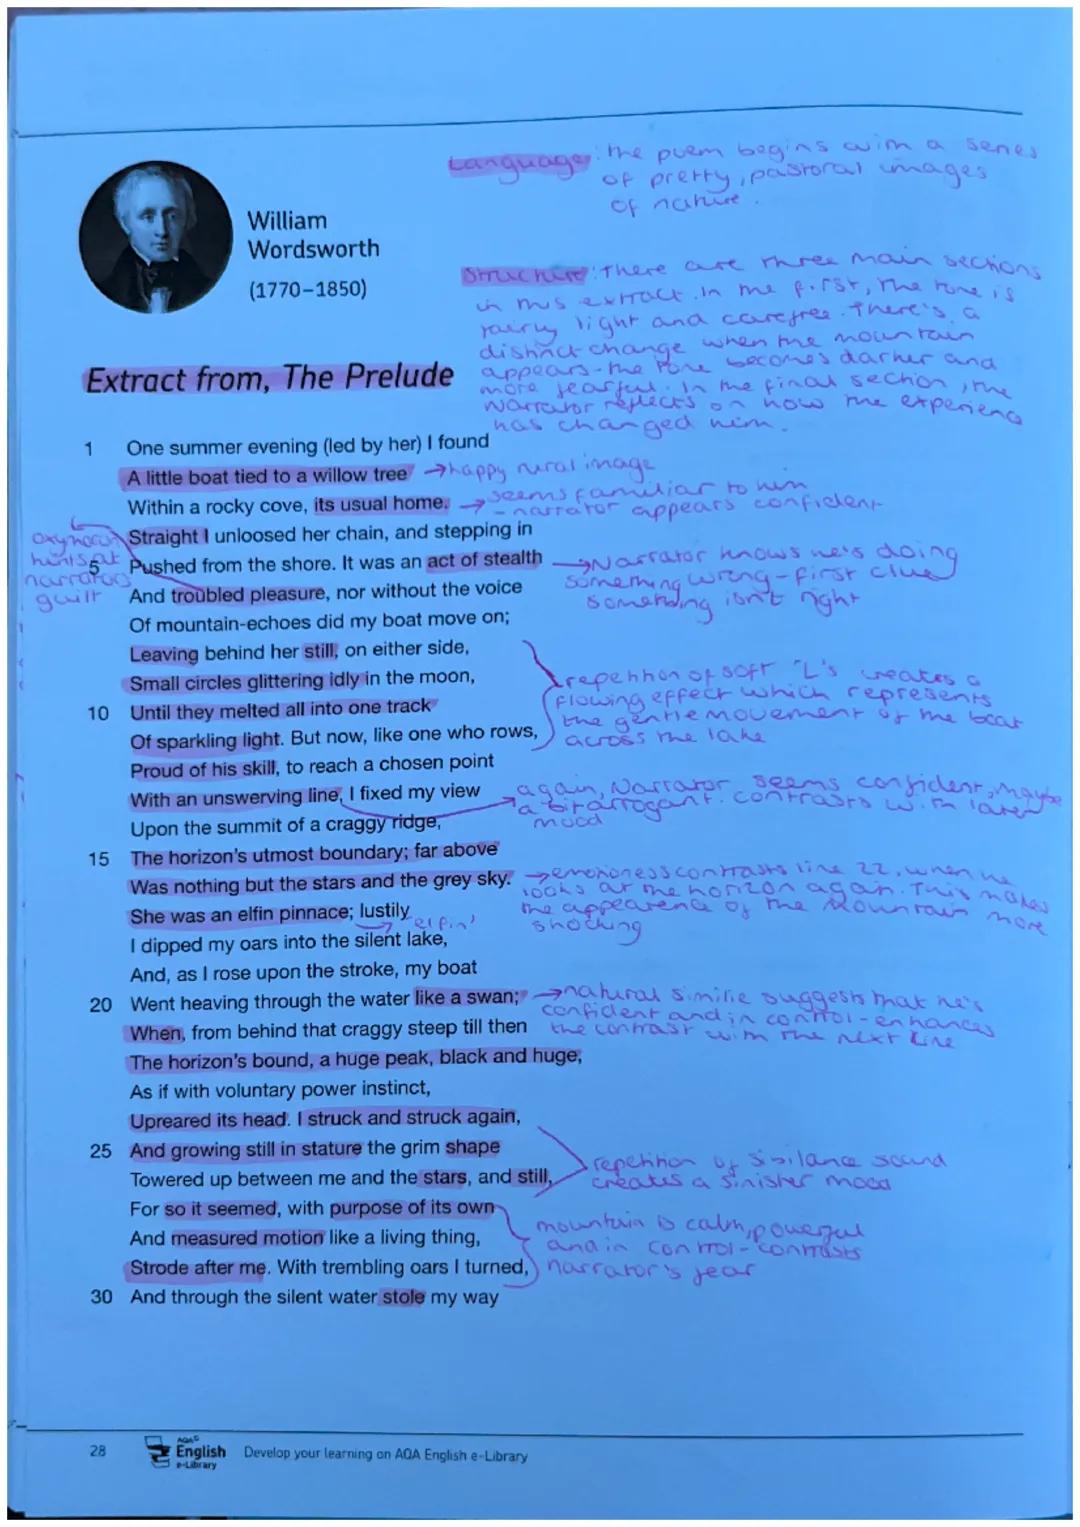 Language: the poem begins with a series
of pretty, pastoral images
of nature.
William
Wordsworth
(1770–1850)
Structure: There are three main sections
in this extract. In the first, the tone is
fairly light and carefree. There's a
distinct change when the mountain
appears - the tone becomes darker and
more fearful. In the final section, the
narrator reflects on how the experienc
has changed him.
Extract from, The Prelude
1 One summer evening (led by her) I found
A little boat tied to a willow tree → happy rural image
Within a rocky cove, its usual home. → seems familiar to him
- narrator appears confident
Straight I unloosed her chain, and stepping in
oxymoron
hints at
narrators
guilt
5 Pushed from the shore. It was an act of stealth → Narrator knows he's doing
something wrong - first clue
something isn't right
And troubled pleasure, nor without the voice
Of mountain-echoes did my boat move on;
Leaving behind her still, on either side,
Small circles glittering idly in the moon,
repetition of soft 'L's creates a
flowing effect which represents
the gentle movement of the boat
across the lake
10 Until they melted all into one track
Of sparkling light. But now, like one who rows,
Proud of his skill, to reach a chosen point
With an unswerving line, I fixed my view
again, Narrator seems confident, maybe
a bit arrogant. contrasts with later
mood
Upon the summit of a craggy ridge,
15 The horizon's utmost boundary; far above
Was nothing but the stars and the grey sky. → emptiness contrasts line 22, when he
looks at the horizon again. This makes
the appearence of the mountain more
shocking
She was an elfin pinnace; lustily
elfin'
I dipped my oars into the silent lake,
And, as I rose upon the stroke, my boat
20 Went heaving through the water like a swan; → natural similie suggests that he's
confident and in control - enhances
the contrast with the next line
When, from behind that craggy steep till then
The horizon's bound, a huge peak, black and huge,
As if with voluntary power instinct,
Upreared its head. I struck and struck again,
25 And growing still in stature the grim shape
Towered up between me and the stars, and still,
repetition of sibilance sound
creates a sinister mood
For so it seemed, with purpose of its own
And measured motion like a living thing,
Strode after me. With trembling oars I turned,
mountain is calm, powerful
and in control - contrasts
narrator's fear
30 And through the silent water stole my way
28
AQA
English
e-Library
Develop your learning on AQA English e-Library